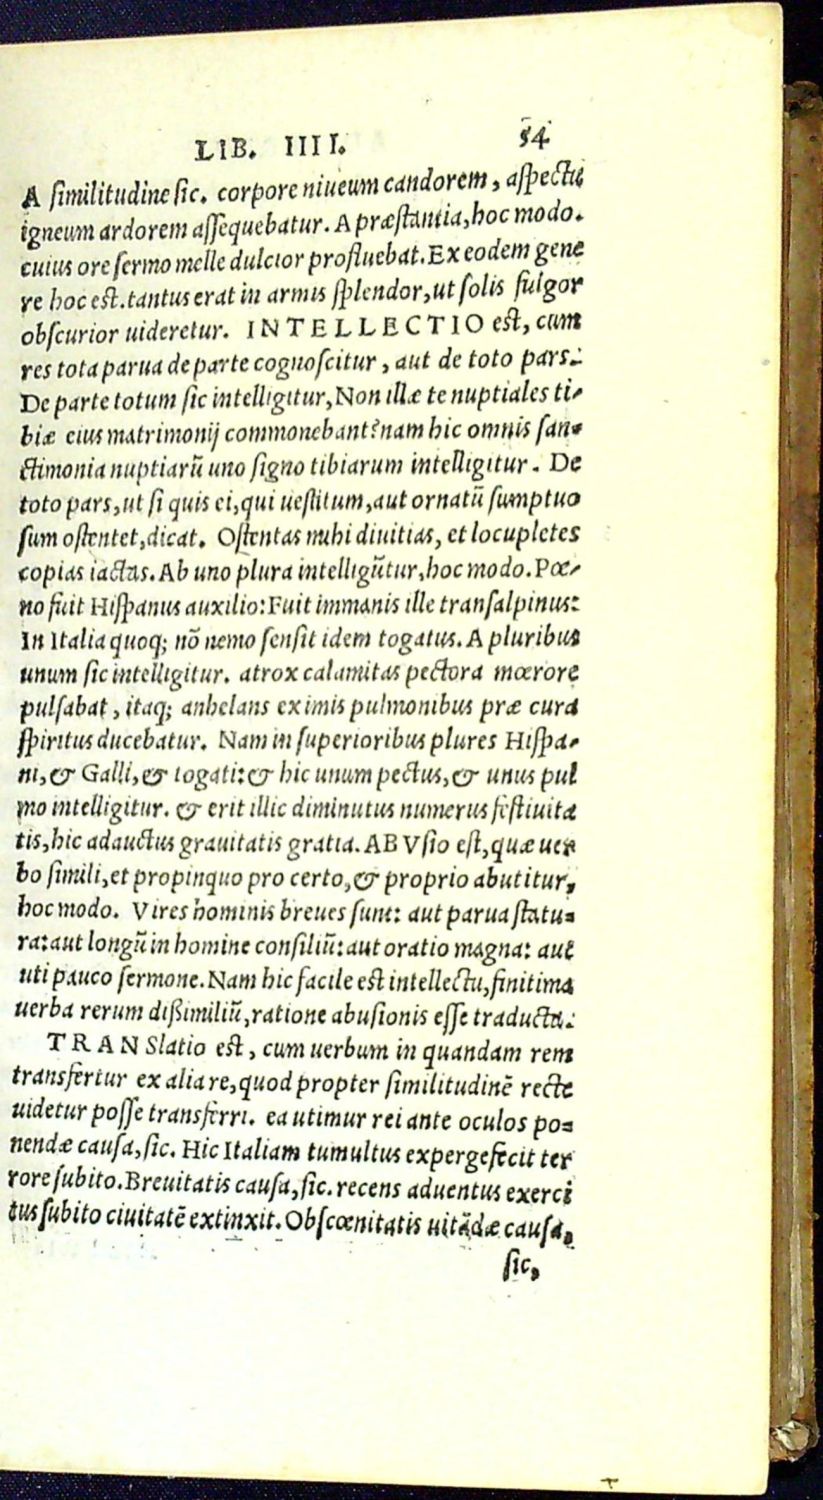 LIB. IIII. 54
A ſimilitudine ſic. corpore niueum candorem, aſpectu
igneum ardorem aſſequebatur. A præſtantia, hoc modo.
cuius ore ſermo melle dulcior profluebat. Ex eodem gene
re hoc est. tantus erat in armis ſplendor, ut ſolis fulgor
obſcurior uideretur. INTELLECTIO est, cum
res tota parua de parte cognoſcitur, aut de toto pars.
De parte totum ſic intelligitur, Non illæ te nuptiales ti-
biæ eius matrimonij commonebant? nam hic omnis ſan-
ctimonia nuptiarũ uno ſigno tibiarum intelligitur. De
toto pars, ut ſi quis ei, qui ueſtitum, aut ornatũ ſumptuo
ſum oſtentet, dicat. Oſtentas mihi diuitias, et locupletes
copias iactas. Ab uno plura intelligũtur, hoc modo. Pœ-
no fuit Hiſpanus auxilio: Fuit immanis ille tranſalpinus:
In Italia quoq; nõ nemo ſenſit idem togatus. A pluribus
unum ſic intelligitur. atrox calamitas pectora mœrore
pulſabat, itaq; anhelans ex imis pulmonibus præ cura
ſpiritus ducebatur. Nam in ſuperioribus plures Hiſpa-
ni, & Galli, & togati: & hic unum pectus, & unus pul
mo intelligitur. & erit illic diminutus numerus feſtiuita
tis, hic adauctus grauitatis gratia. ABVſio eſt, quæ uer
bo ſimili, et propinquo pro certo, & proprio abutitur,
hoc modo. Vires hominis breues ſunt: aut parua ſtatu-
ra: aut longũ in homine conſiliũ: aut oratio magna: aut
uti pauco ſermone. Nam hic facile est intellectu, finitima
uerba rerum dißimiliũ, ratione abuſionis eſſe traducta.
TRANSlatio est, cum uerbum in quandam rem
transfertur ex alia re, quod propter ſimilitudinẽ recte
uidetur poſſe transferri. ea utimur rei ante oculos po-
nendæ cauſa, ſic. Hic Italiam tumultus expergefecit ter
rore ſubito. Breuitatis cauſa, ſic. recens aduentus exerci
tus ſubito ciuitatẽ extinxit. Obſcœnitatis uitãdæ cauſa,
ſic,